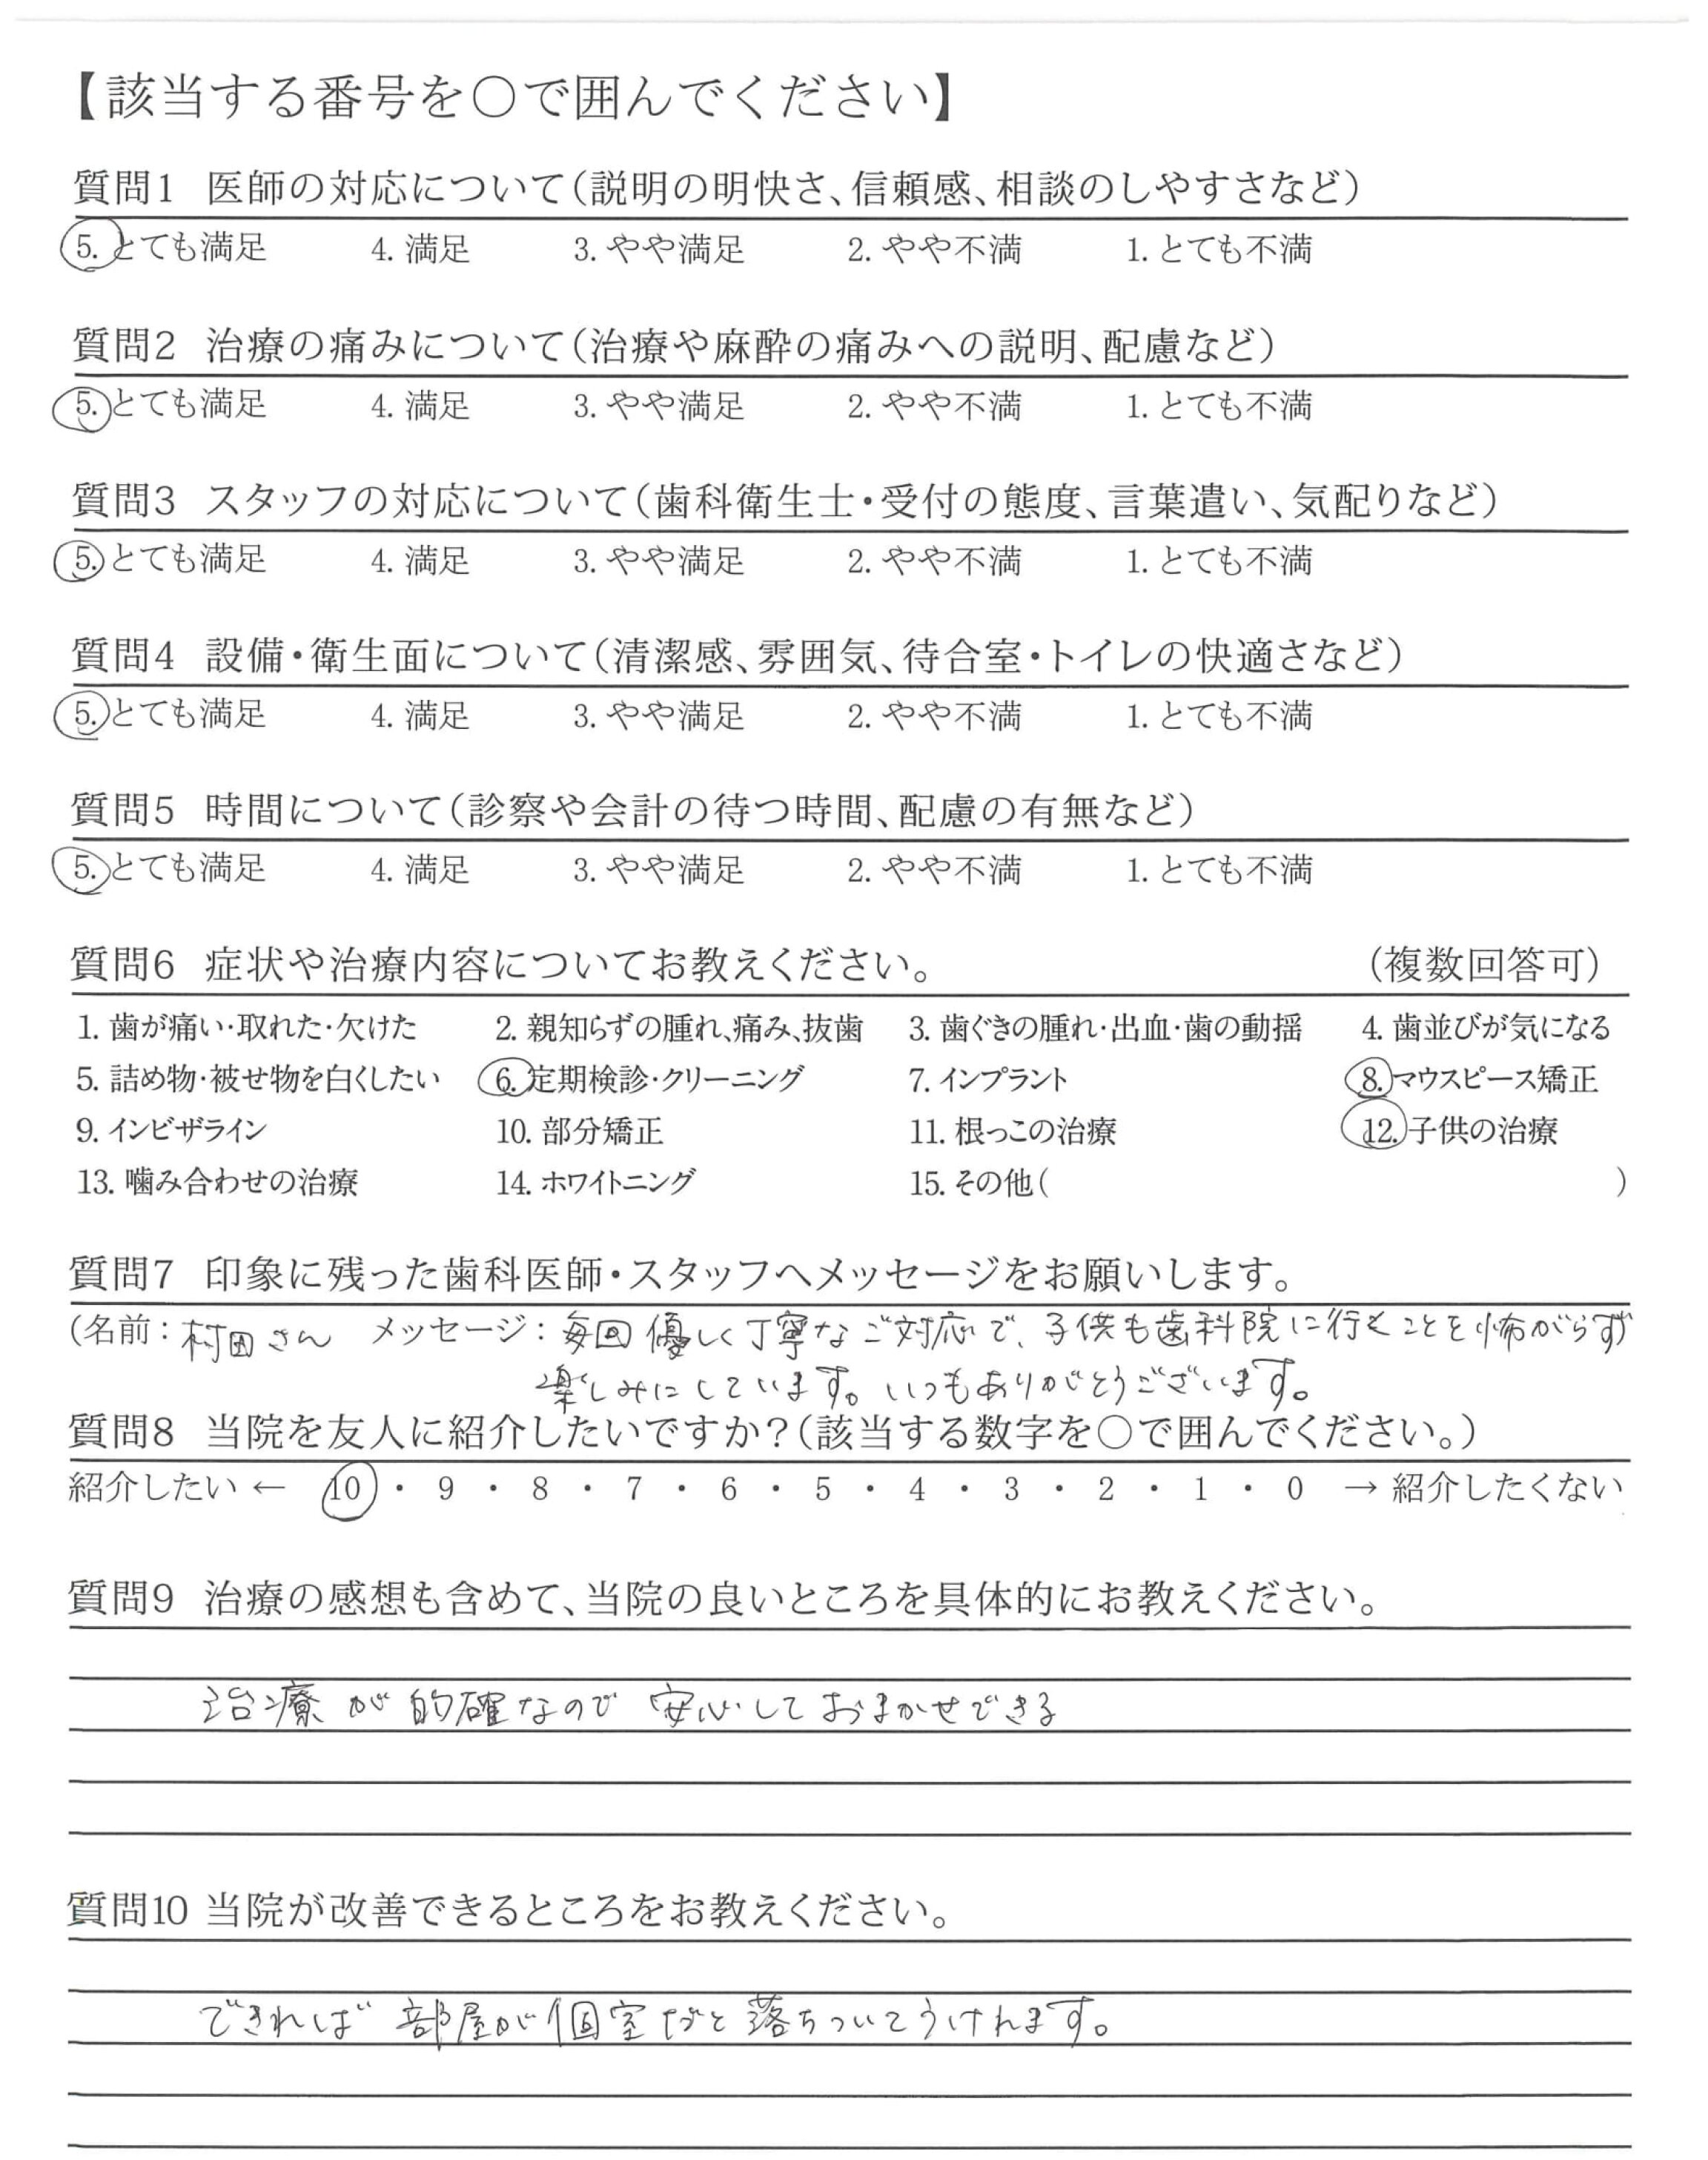 【該当する番号を○で囲んでください】
質問1 医師の対応について（説明の明快さ、信頼感、相談のしやすさなど）
5. とても満足 4. 満足 3. やや満足 2. やや不満 1. とても不満
質問2 治療の痛みについて（治療や麻酔の痛みへの説明、配慮など）
5. とても満足 4. 満足 3. やや満足 2. やや不満 1. とても不満
質問3 スタッフの対応について（歯科衛生士・受付の態度、言葉遣い、気配りなど）
5. とても満足 4. 満足 3. やや満足 2. やや不満 1. とても不満
質問4 設備・衛生面について（清潔感、雰囲気、待合室・トイレの快適さなど）
5. とても満足 4. 満足 3. やや満足 2. やや不満 1. とても不満
質問5 時間について（診察や会計の待つ時間、配慮の有無など）
5. とても満足 4. 満足 3. やや満足 2. やや不満 1. とても不満
質問6 症状や治療内容についてお教えください。 （複数回答可）
1. 歯が痛い・取れた・欠けた 2. 親知らずの腫れ、痛み、抜歯 3. 歯ぐきの腫れ・出血・歯の動揺 4. 歯並びが気になる
5. 詰め物・被せ物を白くしたい 6. 定期検診・クリーニング 7. インプラント 8. マウスピース矯正
9. インビザライン 10. 部分矯正 11. 根っこの治療 12. 子供の治療
13. 噛み合わせの治療 14. ホワイトニング 15. その他（ ）
質問7 印象に残った歯科医師・スタッフへメッセージをお願いします。
（名前：村田さん メッセージ：毎回優しく丁寧なご対応で、子供も歯科院に行くことを怖がらず
楽しみにしています。いつもありがとうございます。
質問8 当院を友人に紹介したいですか？（該当する数字を○で囲んでください。）
紹介したい ← 10 ・ 9 ・ 8 ・ 7 ・ 6 ・ 5 ・ 4 ・ 3 ・ 2 ・ 1 ・ 0 → 紹介したくない
質問9 治療の感想も含めて、当院の良いところを具体的にお教えください。
治療が的確なので安心しておまかせできる
質問10 当院が改善できるところをお教えください。
できれば部屋が個室だと落ちついてうけれます。